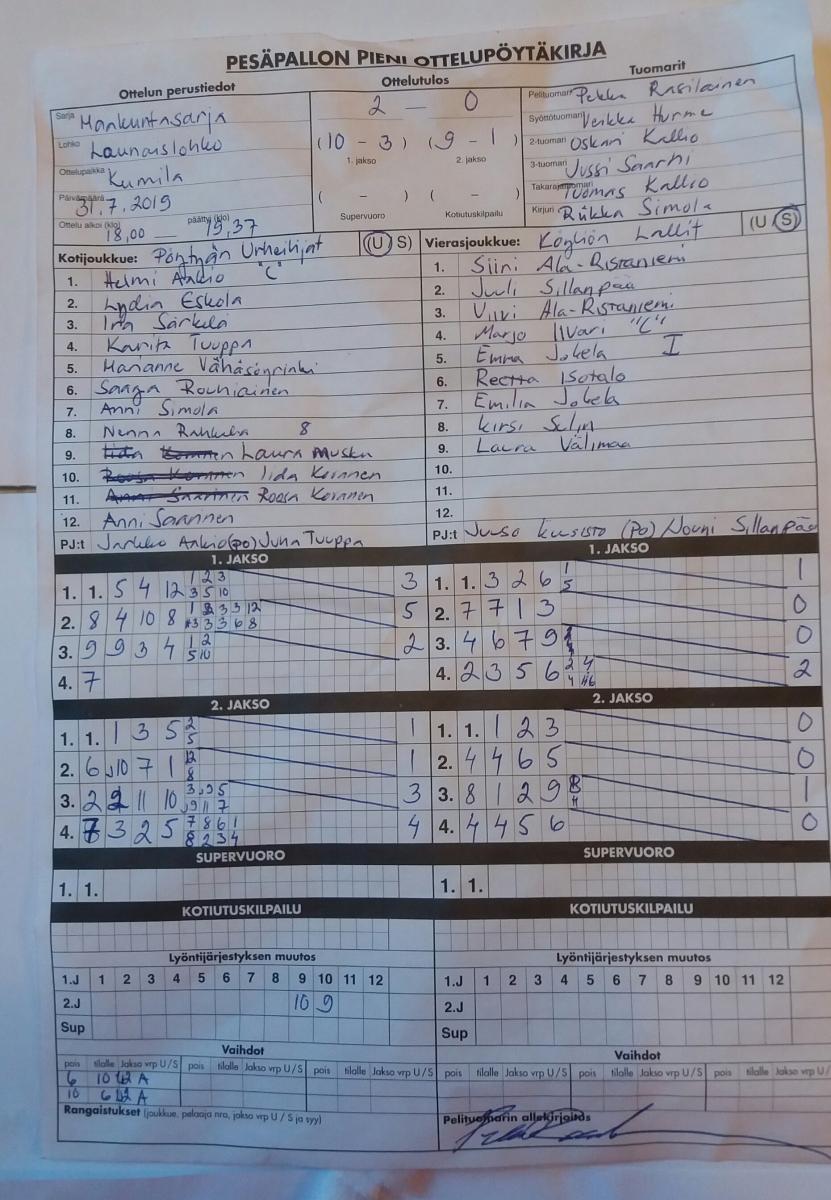 PESÄPALLON PIENI OTTELUPÖYTÄKIRJA
Ottelun perustiedot
Sarja Maakuntasarja
Lohko Launaislohko
Ottelupaikka Kumila
Päivämäärä 31.7.2019
Ottelu alkoi (klo) 18,00 — päättyi (klo) 19,37
Ottelutulos
2 — 0
(10 - 3) (9 - 1)
1. jakso 2. jakso
( - ) ( - )
Supervuoro Kotiutuskilpailu
Tuomarit
Pelituomari Pekka Rasilainen
Syöttötuomari Veikka Hurme
2-tuomari Oskari Kallio
3-tuomari Jussi Saarni
Takarajatuomari Tuomas Kallio
Kirjuri Riikka Simola
Kotijoukkue: Pöytyän Urheilijat (U S)
1. Helmi Ankio "C"
2. Lydia Eskola
3. Iria Särkelä
4. Karita Tuuppa
5. Marianne Vähäsöyrinki
6. Saaga Rouhiainen
7. Anni Simola
8. Nenna 8
9. Iida Laura Musku
10. Iida Koranen
11. Roosa Koranen
12. Anni Saarinen
PJ:t Jarkko Ankio (po) Juha Tuuppa
Vierasjoukkue: Köyliön Lallit (U S)
1. Siini Ala-Ristaniemi
2. Juuli Sillanpää
3. Viivi Ala-Ristaniemi
4. Marjo Iivari "C"
5. Emma Jokela I
6. Reetta Isotalo
7. Emilia Jokela
8. Kirsi Selin
9. Laura Välimaa
10.
11.
12.
PJ:t Juuso Kuusisto (po) Jouni Sillanpää
1. JAKSO
1. 1. 5 4 12 1 2 3 3
3 5 10
2. 8 4 10 8 5
3. 9 9 3 4 1 2 2
5 10
4. 7
1. JAKSO
1. 1. 3 2 6 1 1
5
2. 7 7 1 3 0
3. 4 6 7 9 0
4. 2 3 5 6 2 4 2
2. JAKSO
1. 1. 1 3 5 2 1
5
2. 6 10 7 1 12 1
8
3. 2 2 11 10 3
4. 7 3 2 5 7 8 6 1 4
8 2 3 4
2. JAKSO
1. 1. 1 2 3 0
2. 4 4 6 5 0
3. 8 1 2 9 1
4. 4 4 5 6 0
SUPERVUORO
1. 1.
SUPERVUORO
1. 1.
KOTIUTUSKILPAILU
KOTIUTUSKILPAILU
Lyöntijärjestyksen muutos
1.J 1 2 3 4 5 6 7 8 9 10 11 12
2.J 10 9
Sup
Lyöntijärjestyksen muutos
1.J 1 2 3 4 5 6 7 8 9 10 11 12
2.J
Sup
Vaihdot
pois tilalle Jakso vrp U/S pois tilalle Jakso vrp U/S pois tilalle Jakso vrp U/S
6 10 A
10 6 A
Vaihdot
pois tilalle Jakso vrp U/S pois tilalle Jakso vrp U/S pois tilalle Jakso vrp U/S
Rangaistukset (joukkue, pelaaja nro, jakso vrp U / S ja syy)
Pelituomarin allekirjoitus